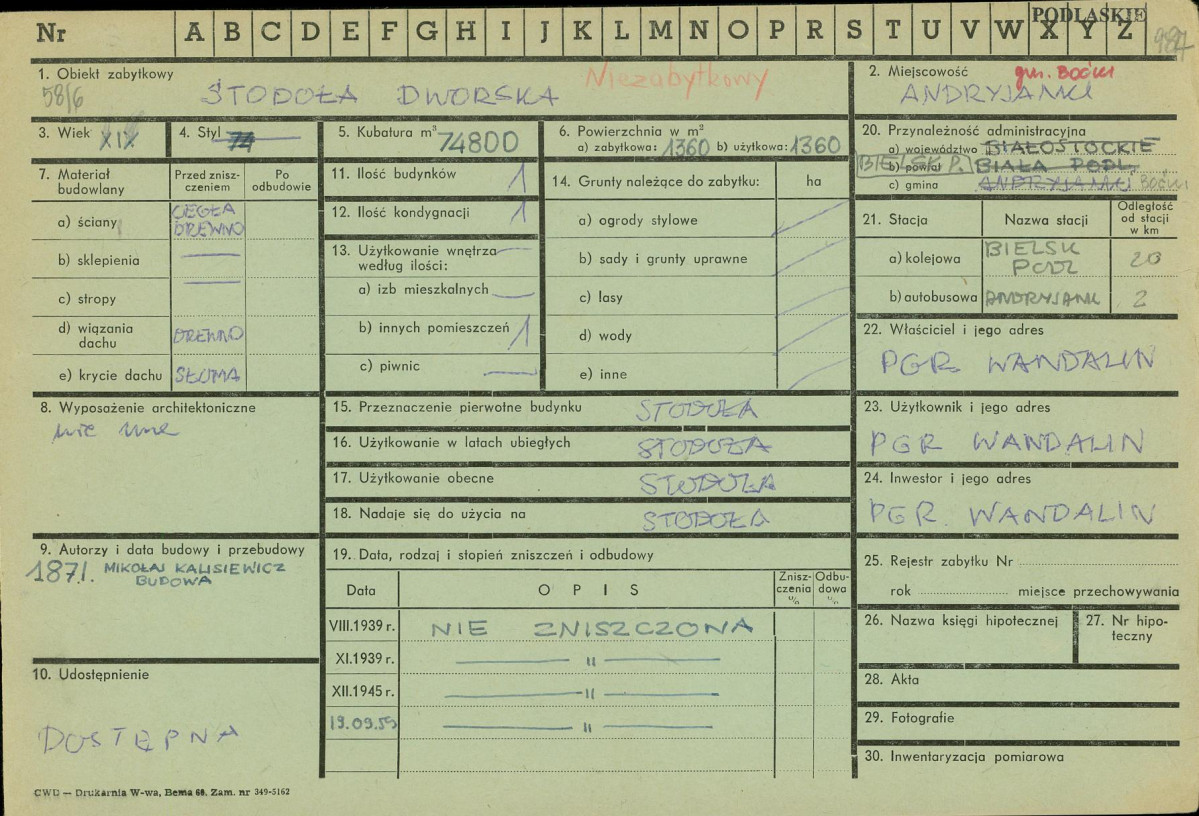 PODLASKIE
Nr A B C D E F G H I J K L M N O P R S T U V W X Y Z
987
1. Obiekt zabytkowy
58/6
Niezabytkowy
STODOŁA DWORSKA
2. Miejscowość gm. Boćki
ANDRYJANKI
3. Wiek XIX
4. Styl
5. Kubatura m³ 74800
6. Powierzchnia w m²
a) zabytkowa: 1360 b) użytkowa: 1360
7. Materiał budowlany
Przed znisz-
czeniem
Po
odbudowie
a) ściany CEGŁA
DREWNO
b) sklepienia —
c) stropy —
d) wiązania
dachu DREWNO
e) krycie dachu SŁOMA
8. Wyposażenie architektoniczne
nie ma
9. Autorzy i data budowy i przebudowy
1871. MIKOŁAJ KALISIEWICZ
BUDOWA
10. Udostępnienie
DOSTĘPNA
11. Ilość budynków 1
12. Ilość kondygnacji 1
13. Użytkowanie wnętrza —
według ilości:
a) izb mieszkalnych —
b) innych pomieszczeń 1
c) piwnic —
14. Grunty należące do zabytku: ha
a) ogrody stylowe
b) sady i grunty uprawne
c) lasy
d) wody
e) inne
15. Przeznaczenie pierwotne budynku STODOŁA
16. Użytkowanie w latach ubiegłych STODOŁA
17. Użytkowanie obecne STODOŁA
18. Nadaje się do użycia na STODOŁA
19. Data, rodzaj i stopień zniszczeń i odbudowy
Data OPIS
Znisz-
czenia
%
Odbu-
dowa
%
VIII.1939 r. NIE ZNISZCZONA
XI.1939 r. — 〃 —
XII.1945 r. — 〃 —
19.09.59 — 〃 —
20. Przynależność administracyjna
a) województwo BIAŁOSTOCKIE
BIELSK P. b) powiat BIAŁA PODL.
c) gmina ANDRYJANKI Boćki
21. Stacja
Nazwa stacji
Odległość
od stacji
w km
a) kolejowa BIELSK
PODL 20
b) autobusowa ANDRYJANKI 2
22. Właściciel i jego adres
PGR WANDALIN
23. Użytkownik i jego adres
PGR WANDALIN
24. Inwestor i jego adres
PGR WANDALIN
25. Rejestr zabytku Nr
rok miejsce przechowywania
26. Nazwa księgi hipotecznej
27. Nr hipo-
teczny
28. Akta
29. Fotografie
30. Inwentaryzacja pomiarowa
CWD — Drukarnia W-wa, Bema 60. Zam. nr 349-5162